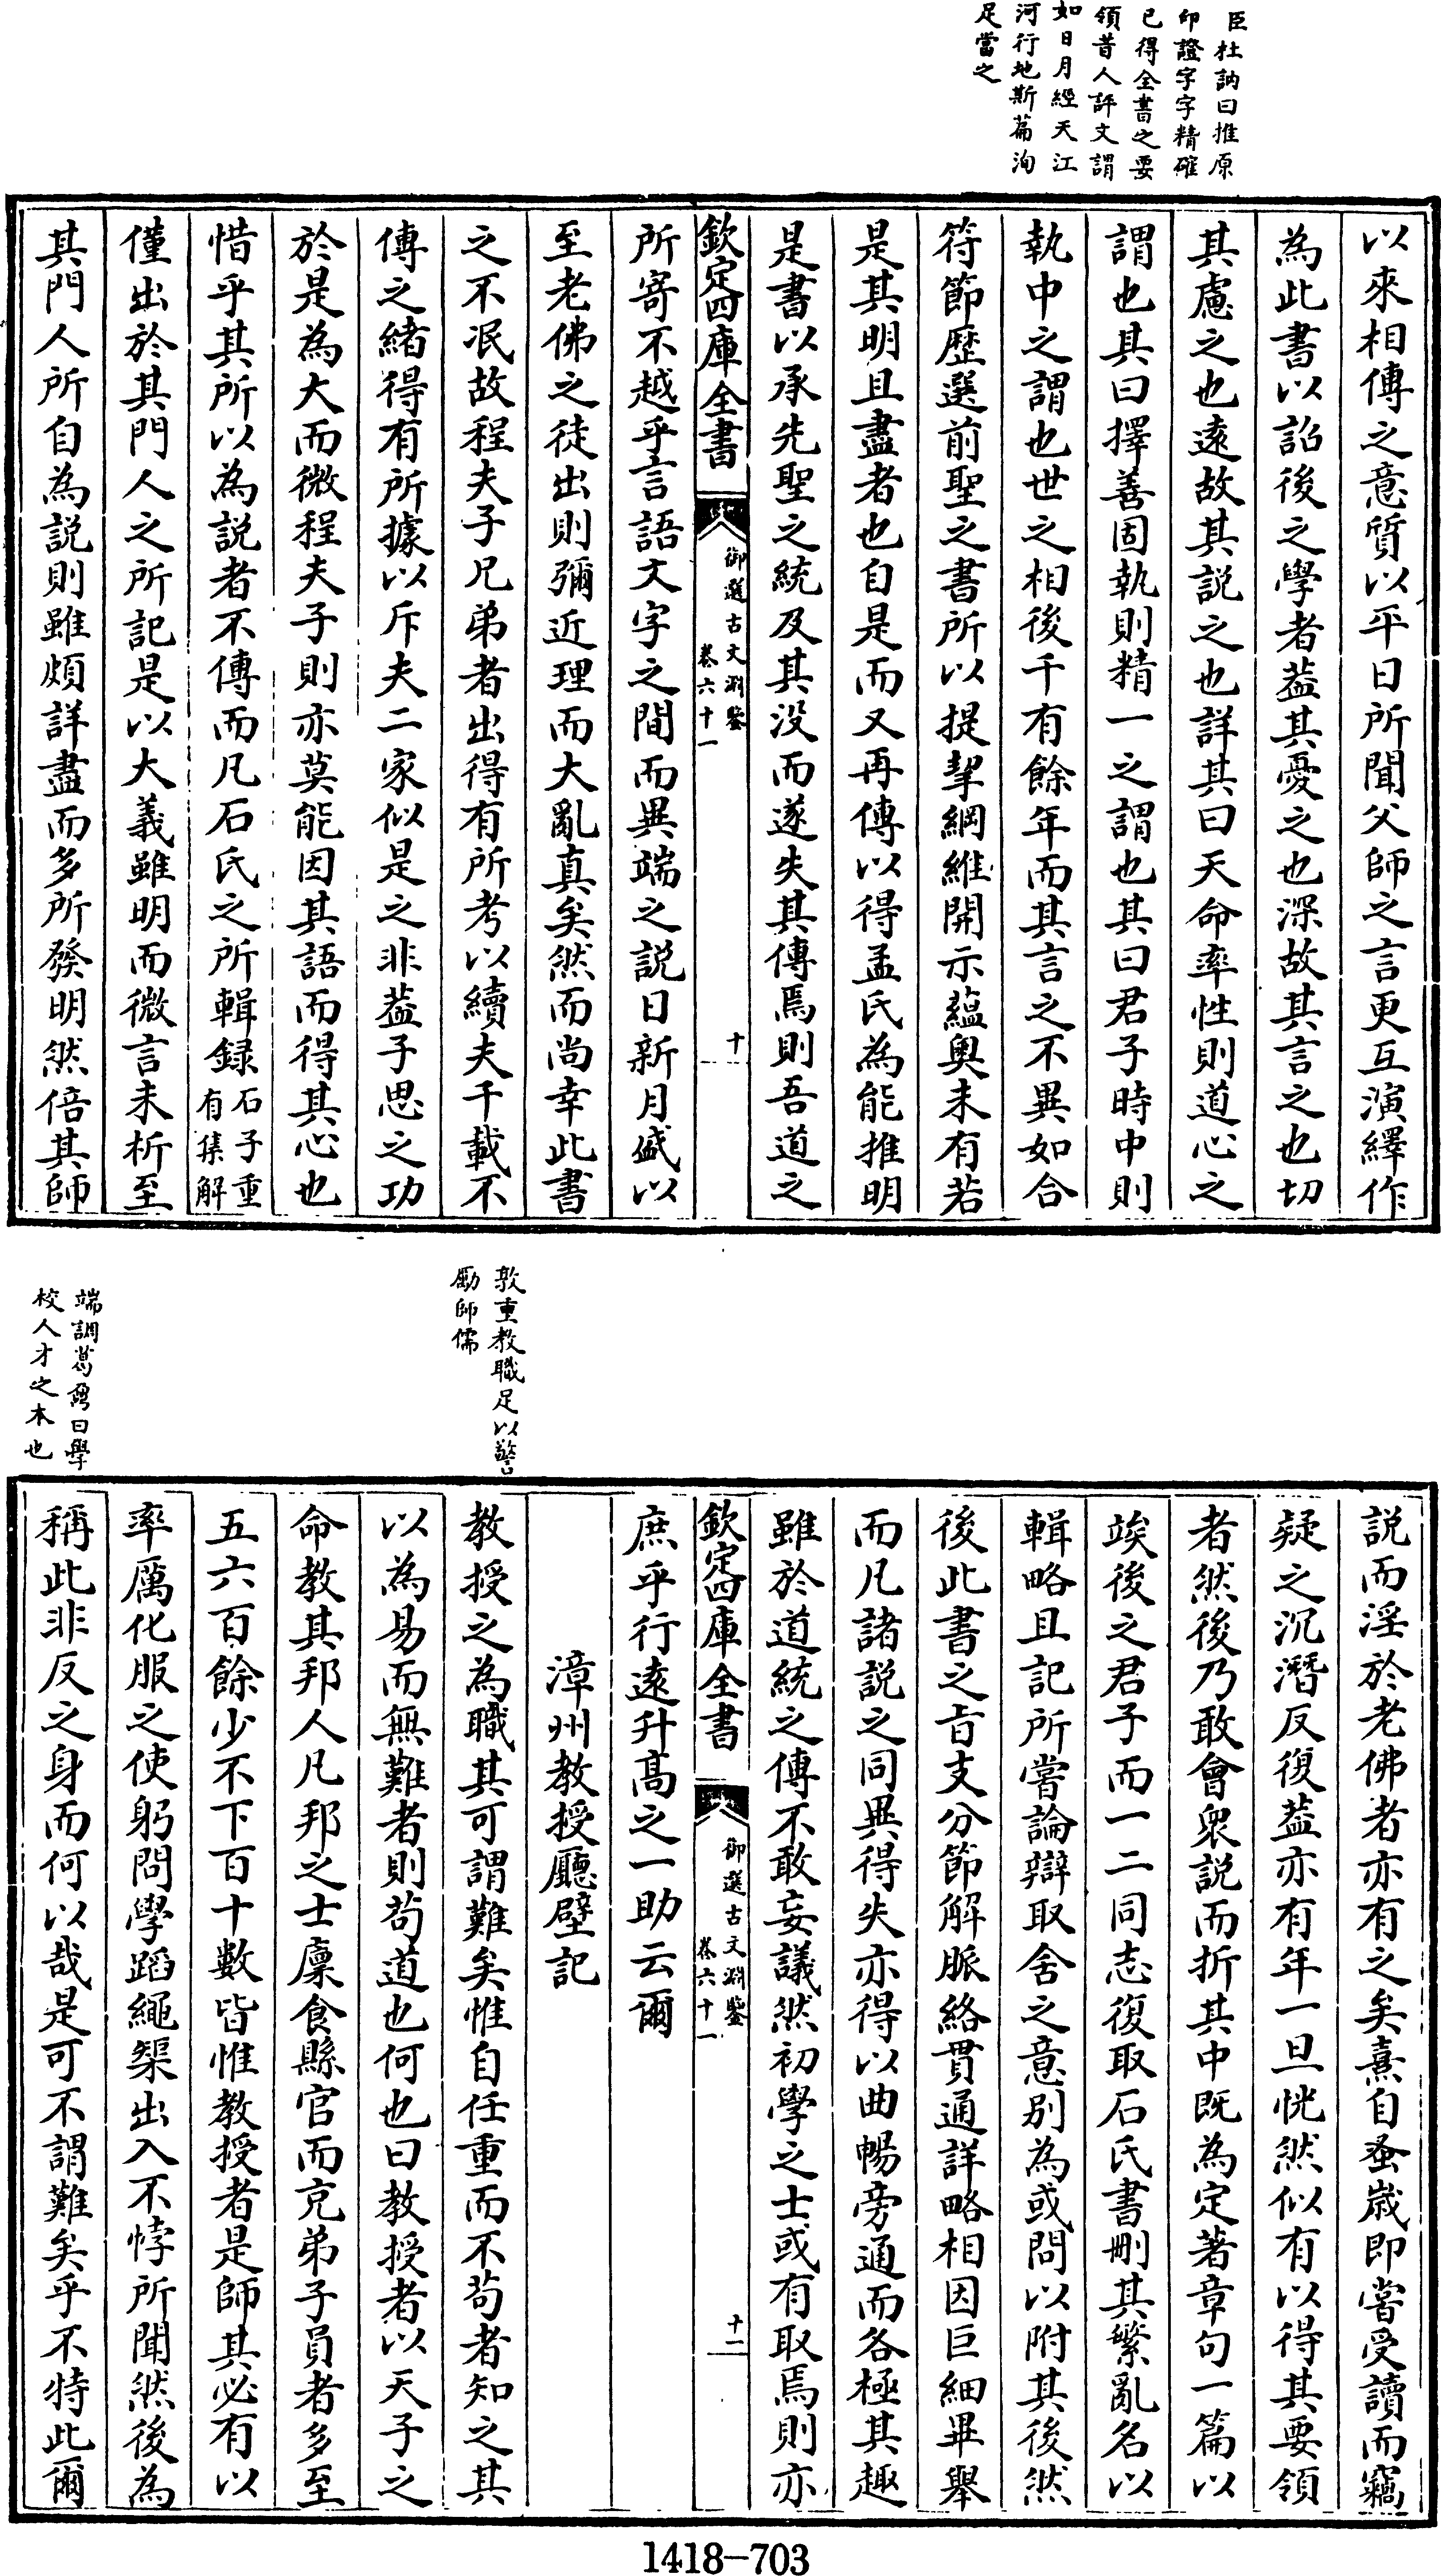 臣杜訥曰推原
印證字字精確
已得全書之要
領昔人評文謂
如日月經天江
河行地斯篇洵
足當之
以來相傳之意質以平日所聞父師之言更互演繹作
為此書以詔後之學者葢其憂之也深故其言之也切
其慮之也遠故其説之也詳其曰天命率性則道心之
謂也其曰擇善固執則精一之謂也其曰君子時中則
執中之謂也世之相後千有餘年而其言之不異如合
符節歴選前聖之書所以提挈綱維開示蘊奥未有若
是其明且盡者也自是而又再傳以得孟氏為能推明
是書以承先聖之統及其没而遂失其傳焉則吾道之
欽定四庫全書
御選古文淵鑒
卷六十一
十
所寄不越乎言語文字之間而異端之説日新月盛以
至老佛之徒出則彌近理而大亂真矣然而尚幸此書
之不泯故程夫子兄弟者出得有所考以續夫千載不
傳之緒得有所據以斥夫二家似是之非葢子思之功
於是為大而微程夫子則亦莫能因其語而得其心也
惜乎其所以為説者不傳而凡石氏之所輯録石子重有集解
僅出於其門人之所記是以大義雖明而微言未析至
其門人所自為説則雖頗詳盡而多所發明然倍其師
敦重教職足以警
勵師儒
端調葛鼐曰學
校人才之本也
説而淫於老佛者亦有之矣熹自蚤歲即嘗受讀而竊
疑之沉潛反復葢亦有年一旦恍然似有以得其要領
者然後乃敢會衆説而折其中既為定著章句一篇以
竢後之君子而一二同志復取石氏書刪其繁亂名以
輯略且記所嘗論辯取舍之意别為或問以附其後然
後此書之㫖支分節解脈絡貫通詳略相因巨細畢舉
而凡諸説之同異得失亦得以曲暢旁通而各極其趣
雖於道統之傳不敢妄議然初學之士或有取焉則亦
欽定四庫全書
御選古文淵鑒
卷六十一
十二
庶乎行遠升髙之一助云爾
漳州教授廳壁記
教授之為職其可謂難矣惟自任重而不茍者知之其
以為易而無難者則茍道也何也曰教授者以天子之
命教其邦人凡邦之士廩食縣官而充弟子員者多至
五六百餘少不下百十數皆惟教授者是師其必有以
率厲化服之使躬問學蹈繩榘出入不悖所聞然後為
稱此非反之身而何以哉是可不謂難矣乎不特此爾
1418-703